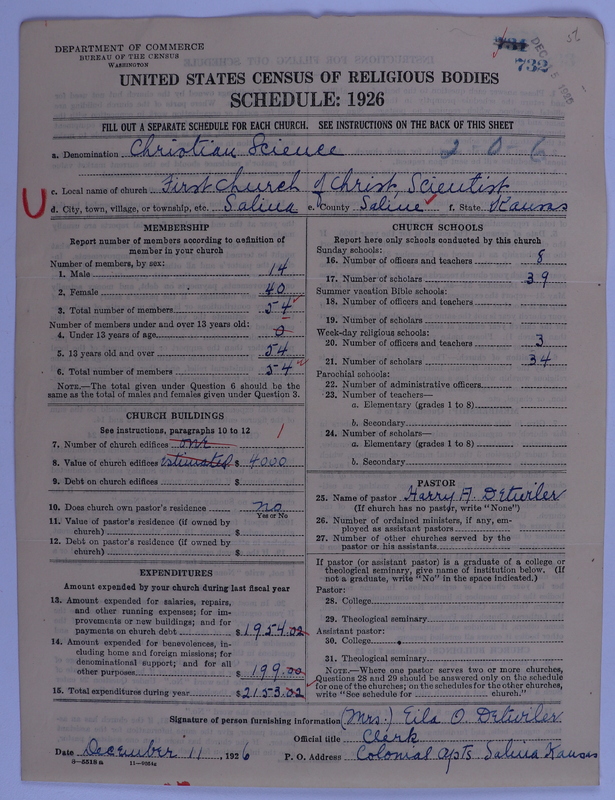 DEPARTMENT OF COMMERCE
BUREAU OF THE CENSUS
WASHINGTON
731
732
DEC 15 1926
UNITED STATES CENSUS OF RELIGIOUS BODIES
SCHEDULE: 1926
FILL OUT A SEPARATE SCHEDULE FOR EACH CHURCH. SEE INSTRUCTIONS ON THE BACK OF THIS SHEET
a. Denomination Christian Science 2-0-6
c. Local name of church First Church of Christ, Scientist
U
d. City, town, village, or township, etc. Salina e. County Saline f. State Kansas
MEMBERSHIP
Report number of members according to definition of
member in your church
Number of members, by sex:
1. Male 14
2. Female 40
3. Total number of members 54
Number of members under and over 13 years old:
4. Under 13 years of age 0
5. 13 years old and over 54
6. Total number of members 54
NOTE.—The total given under Question 6 should be the
same as the total of males and females given under Question 3.
CHURCH BUILDINGS
See instructions, paragraphs 10 to 12
7. Number of church edifices one 1
8. Value of church edifices estimated $ 4000
9. Debt on church edifices $
10. Does church own pastor's residence no
Yes or No
11. Value of pastor's residence (if owned by
church) $
12. Debt on pastor's residence (if owned by
church) $
EXPENDITURES
Amount expended by your church during last fiscal year
13. Amount expended for salaries, repairs,
and other running expenses; for im-
provements or new buildings; and for
payments on church debt $ 1954.02
14. Amount expended for benevolences, in-
cluding home and foreign missions; for
denominational support; and for all
other purposes $ 199.00
15. Total expenditures during year $ 2153.02
CHURCH SCHOOLS
Report here only schools conducted by this church
Sunday schools:
16. Number of officers and teachers 8
17. Number of scholars 39
Summer vacation Bible schools:
18. Number of officers and teachers
19. Number of scholars
Week-day religious schools:
20. Number of officers and teachers 3
21. Number of scholars 34
Parochial schools:
22. Number of administrative officers
23. Number of teachers—
a. Elementary (grades 1 to 8)
b. Secondary
24. Number of scholars—
a. Elementary (grades 1 to 8)
b. Secondary
PASTOR
25. Name of pastor Harry A. Detwiler
(If church has no pastor, write "None")
26. Number of ordained ministers, if any, em-
ployed as assistant pastors
27. Number of other churches served by the
pastor or his assistants
If pastor (or assistant pastor) is a graduate of a college or
theological seminary, give name of institution below. (If
not a graduate, write "No" in the space indicated.)
Pastor:
28. College
29. Theological seminary
Assistant pastor:
30. College
31. Theological seminary
NOTE.—Where one pastor serves two or more churches,
Questions 28 and 29 should be answered only on the schedule
for one of the churches; on the schedules for the other churches,
write "See schedule for church."
Signature of person furnishing information (Mrs.) Eila O. Detwiler
Official title Clerk
Date December 11, 1926 P. O. Address Colonial Apts Salina Kansas
8—5518a 11—9084a